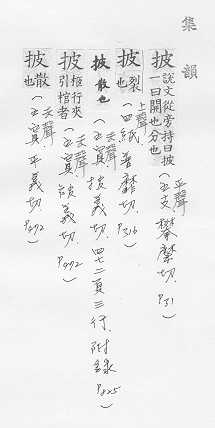 集韻
披 說文從旁持曰披一曰開也分也(平聲 五支 攀縻切 P31)
披 裂也(上聲 四紙 普靡切 P316)
披 散也(去聲 五寘 披義切 四七二頁三行 附錄 P825)
披 柩行夾引棺者(去聲 五寘 披義切 P472)
披 散也(去聲 五寘 平義切 P472)